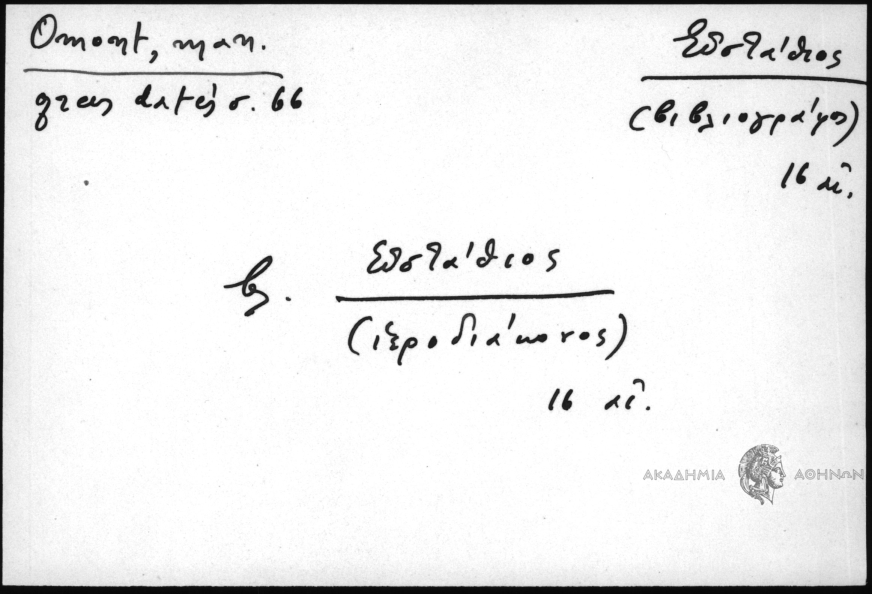 Omont, man.
grecs datés σ. 66
Εὐστάθιος
(βιβλιογράφος)
16 αἰ.
βλ. Εὐστάθιος
(ἱεροδιάκονος)
16 αἰ.
ΑΚΑΔΗΜΙΑ ΑΘΗΝΩΝ